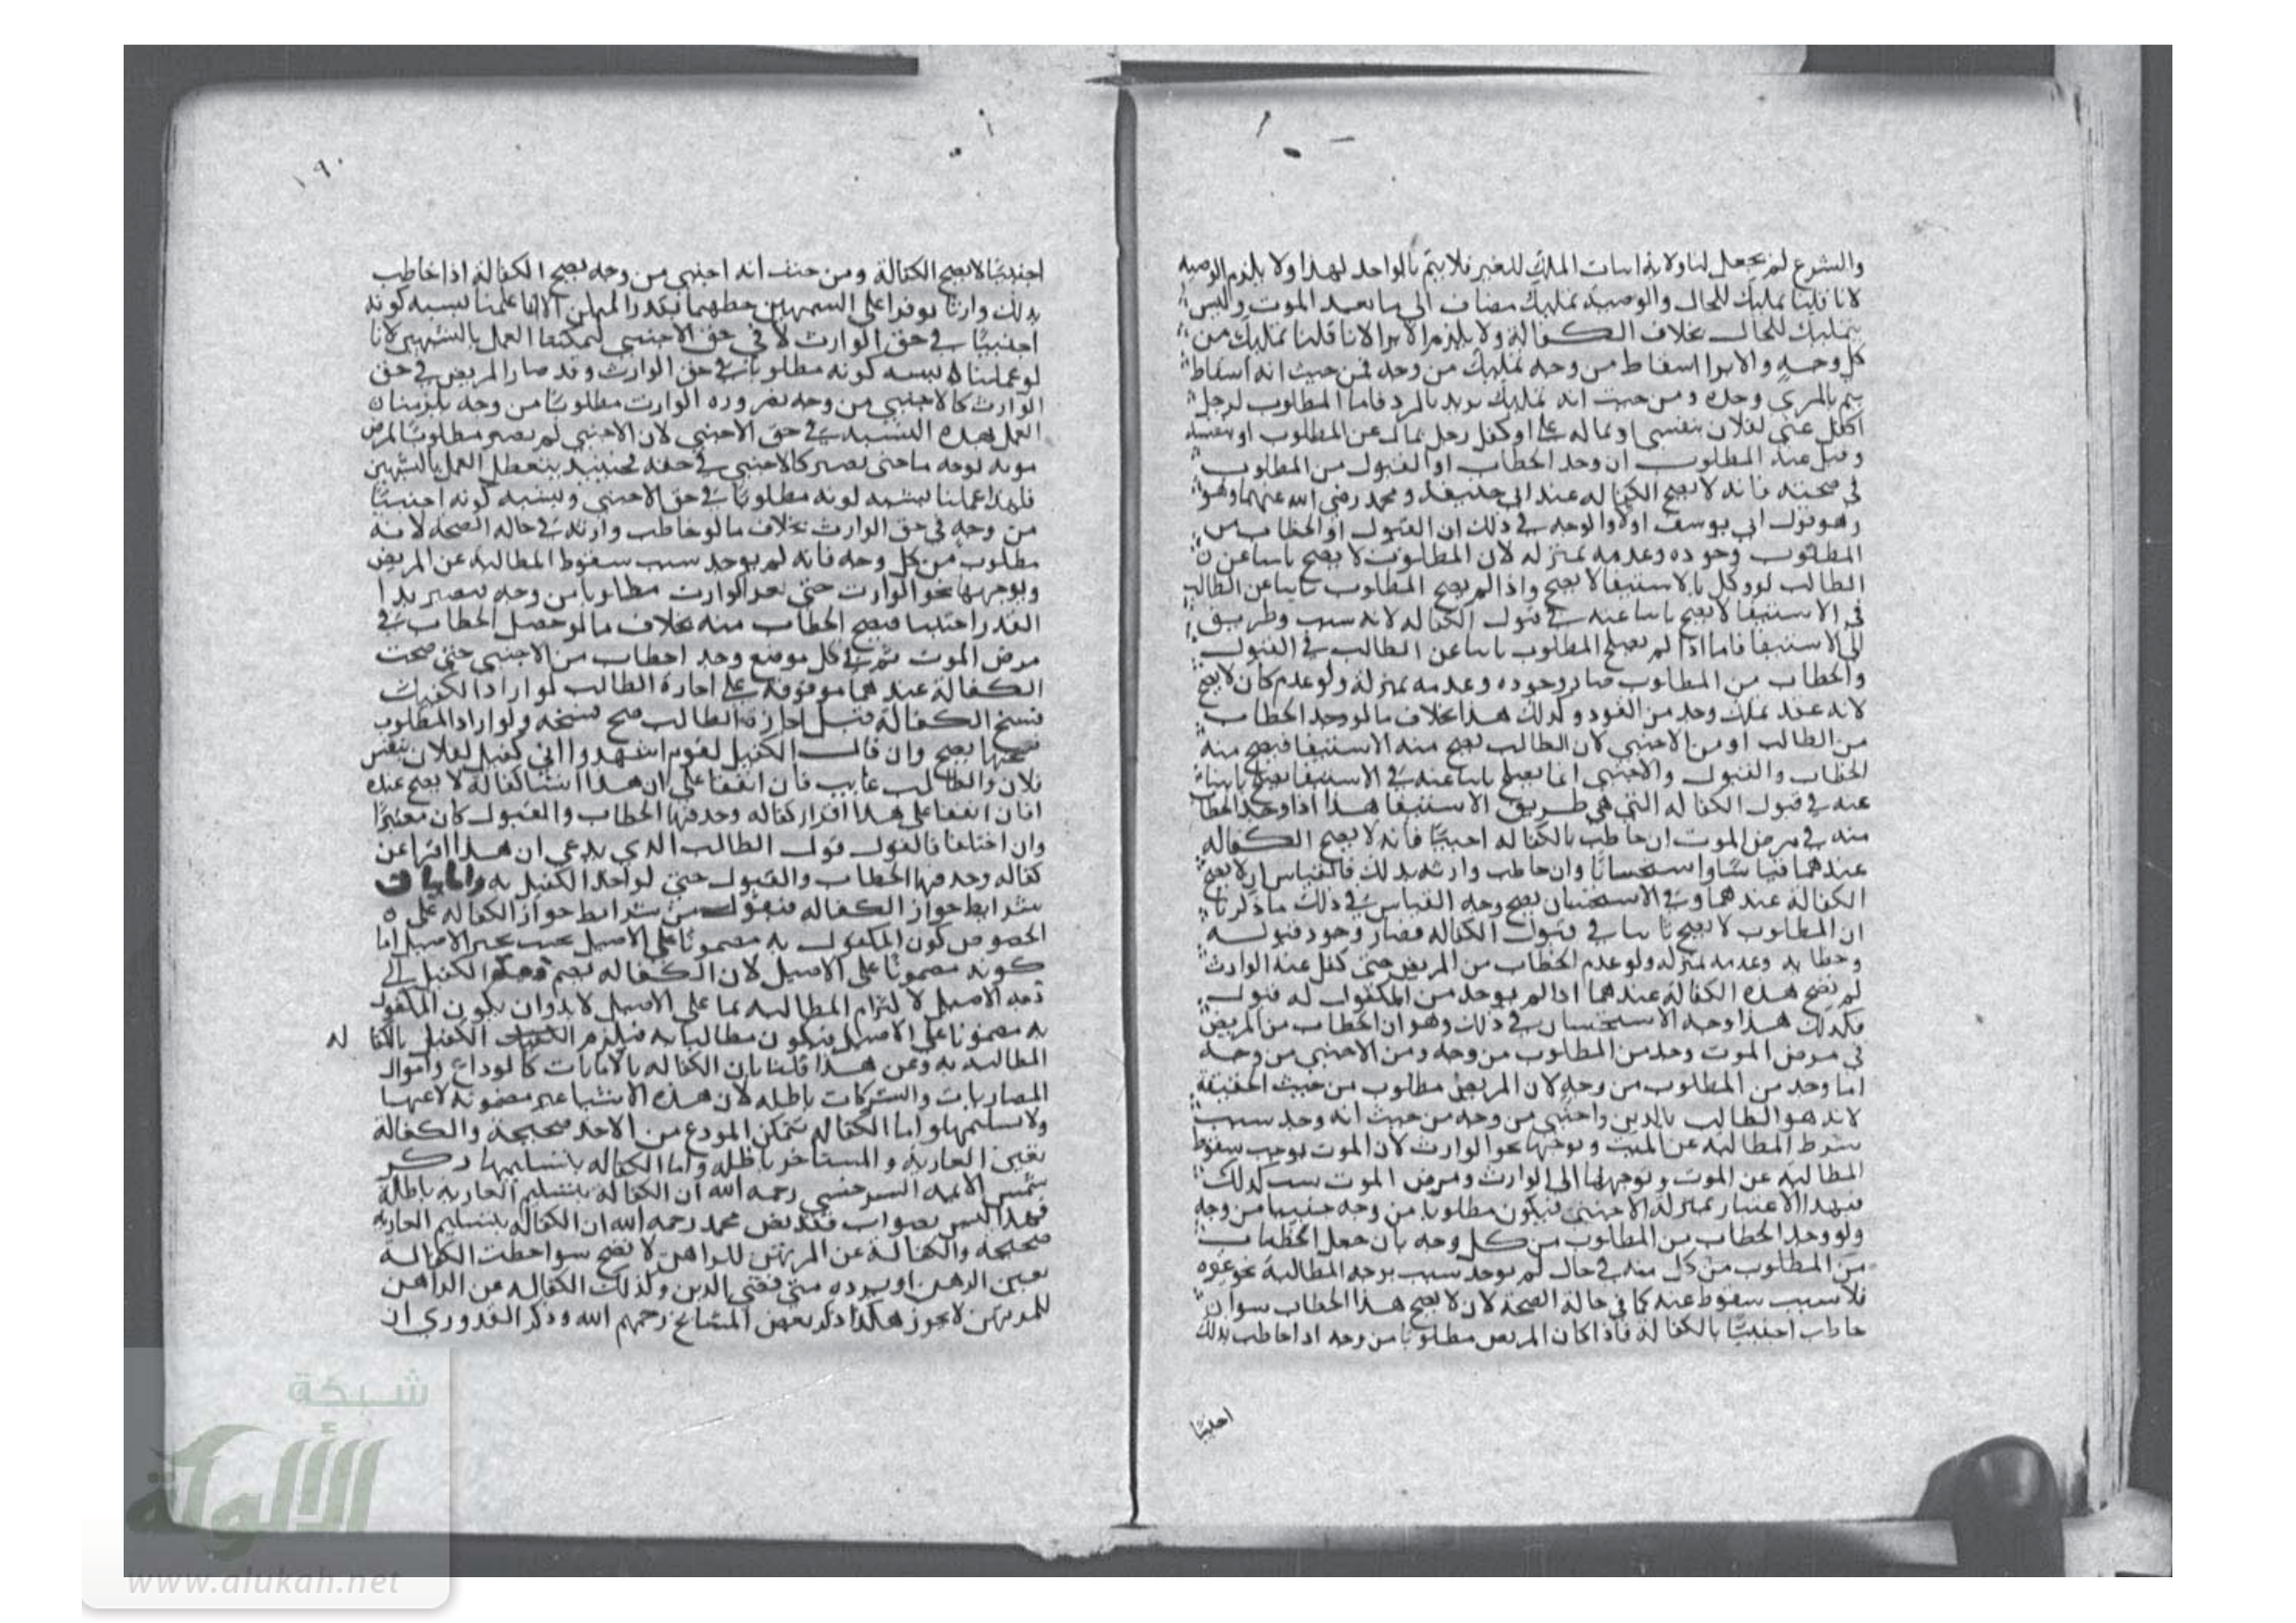 والشرع لم يجعل لنا ولاية اثبات الملك للغير فلا يتم بالواحد لهذا ولا يلزم الوصية
لانا قلنا تمليك للحال والوصية تمليك مضاف الى ما بعد الموت وليس
بتمليك للحال بخلاف الكفالة ولا يلزم الابرا لانا قلنا تمليك من
كل وجه والابرا اسقاط من وجه تمليك من وجه فمن حيث انه اسقاط
يتم بالمبري وحده ومن حيث انه تمليك يرتد بالرد فاما المطلوب لرجل
اكفل عني لفلان بنفسي او بماله علي او كفل رجل بمال عن المطلوب او بنفسه
وقبل عنه المطلوب ان وجد الخطاب او القبول من المطلوب
في صحته فانه لا يصح الكفاله عند ابي حنيفة ومحمد رضي الله عنهما وهو
وهو قول ابي يوسف اولا والوجه في ذلك ان القبول او الخطاب من
المطلوب وجوده وعدمه بمنزله لان المطلوب لا يصح نايبا عن
الطالب لو وكل بالاستيفا لا يصح واذا لم يصح المطلوب نايبا عن الطالب
في الاستيفا لا يصح نايبا عنه في قبول الكفاله لانه سبب وطريق
الى الاستيفا فاما اذا لم يصلح المطلوب نايبا عن الطالب في القبول
والخطاب من المطلوب صار وجوده وعدمه بمنزلة ولو عدم كان لا يصح
لانه عقد تملك وجد من الفرد وكذلك هذا بخلاف ما لو وجد الخطاب
من الطالب او من الاجنبي لان الطالب يصح منه الاستيفا فيصح منه
الخطاب والقبول والاجنبي انما يصلح نايبا عنه في الاستيفا يصلح نايبا
عنه في قبول الكفاله التي هي طريق الاستيفا هذا اذا وجد الخطاب
منه في مرض الموت ان خاطب بالكفاله اجنبيا فانه لا يصح الكفاله
عندهما قياسا واستحسانا وان خاطب وارثه بذلك فالقياس ان لا يصح
الكفالة عندهما وفي الاستحسان يصح وجه القياس في ذلك ما ذكرنا
ان المطلوب لا يصح نايبا في قبول الكفاله فصار وجود قبوله
وخطابه وعدمه بمنزله ولو عدم الخطاب من المريض حتى كفل عنه الوارث
لم تصح هذه الكفالة عندهما اذا لم يوجد من المكفول له قبول
فكذلك هذا وجه الاستحسان في ذلك وهو ان الخطاب من المريض
في مرض الموت وجد من المطلوب من وجه ومن الاجنبي من وجه
اما وجد من المطلوب من وجه لان المريض مطلوب من حيث الحقيقة
لانه هو الطالب بالدين واجنبي من وجه من حيث انه وجد سبب
شرط المطالبة عن الميت وتوجهها نحو الوارث لان الموت يوجب سقوط
المطالبة عن الموت وتوجهها الى الوارث ومرض الموت سبب لذلك
فبهذا الاعتبار بمنزلة الاجنبي فيكون مطلوبا من وجه اجنبيا من وجه
ولو وجد الخطاب من المطلوب من كل وجه بان جعل الخطاب
من المطلوب من كل منه في حال لم يوجد سبب توجه المطالبة نحو غيره
فلا سبب سقوط عنه كما في حالة الصحة لان لا يصح هذا الخطاب سوا ان
خاطب اجنبيا بالكفالة فاذا كان المريض مطلوبا من وجه اذا خاطب بذلك
اجنبيا
١٩٠
اجنبيا لا يصح الكفالة ومن حيث انه اجنبي من وجه يصح الكفالة اذا خاطب
بذلك وارثا توفرا على الشبهين حظهما بقدر الممكن الا انا عملنا بشبه كونه
اجنبيا في حق الوارث لا في حق الاجنبي ليمكننا العمل بالشبهين لانا
لو عملنا بشبه كونه مطلوبا في حق الوارث وقد صار المريض في حق
الوارث كالاجنبي من وجه بضرورة الوارث مطلوبا من وجه يلزمنا
العمل بهذه الشبه في حق الاجنبي لان الاجنبي لم يصر مطلوبا لمرض
موته بوجه ما حتى يصير كالاجنبي في حقه فحينئذ يتعطل العمل بالشبهين
فلهذا عملنا بشبه كونه مطلوبا في حق الاجنبي وبشبه كونه اجنبيا
من وجه في حق الوارث بخلاف ما لو خاطب وارثه في حاله الصحة لانه
مطلوب من كل وجه فانه لم يوجد سبب سقوط المطالبة عن المريض
وتوجهها نحو الوارث حتى يعد الوارث مطلوبا من وجه فيصير بهذا
القدر اجنبيا فيصح الخطاب منه بخلاف ما لو حصل الخطاب في
مرض الموت ثم في كل موضع وجد الخطاب من الاجنبي حتى صحت
الكفالة عندهما موقوفة على اجازة الطالب لو اراد الكفيل
فسخ الكفالة قبل اجازة الطالب صح فسخه ولو اراد المطلوب
فسخها يصح وان قال الكفيل لقوم اشهدوا اني كفيل لفلان بنفس
فلان والطالب غايب فان اتفقا على ان هذا انشا كفالة لا يصح عنده
اما ان اتفقا على هذا اقرار كفاله وجد فيها الخطاب والقبول كان معتبرا
وان اختلفا فالقول قول الطالب الذي يدعي ان هذا اقرا عن
كفاله وجد فيها الخطاب والقبول حتى لو اخذ الكفيل به واما بيان
شرايط جواز الكفاله فنقول من شرايط جواز الكفاله على
الخصوص كون المكفول به مضمونا على الاصيل بحيث يجبر الاصيل اما
كونه مضمونا على الاصيل لان الكفاله بضم ذمة الكفيل الى
ذمه الاصيل لالتزام المطالبه بما على الاصيل لا بد وان يكون المكفول
به مضمونا على الاصيل فيكون مطالبا به فيلزم الكفيل بالكفاله
المطالبه به وعن هذا قلنا بان الكفاله بالامانات كالودايع واموال
المضاربات والشركات باطله لان هذه الاشيا غير مضمونه لا عينها
ولا تسليمها واما الكفاله بتمكن المودع من الاخذ صحيحة والكفالة
بعين العارية والمستاجر باطله واما الكفاله بتسليمها ذكر
شمس الائمه السرخسي رحمه الله ان الكفالة بتسليم العاريه باطلة
فهذا ليس بصواب فقد نص محمد رحمه الله ان الكفالة بتسليم العاريه
صحيحة والكفالة عن المرتهن للراهن لا تصح سوا حصلت الكفالة
بعين الرهن او برده متى قضى الدين وكذلك الكفاله عن الراهن
للمرتهن لا يجوز هكذا ذكر بعض المشايخ رحمهم الله وذكر القدوري ان
شبكة
الألوكة
www.alukah.net